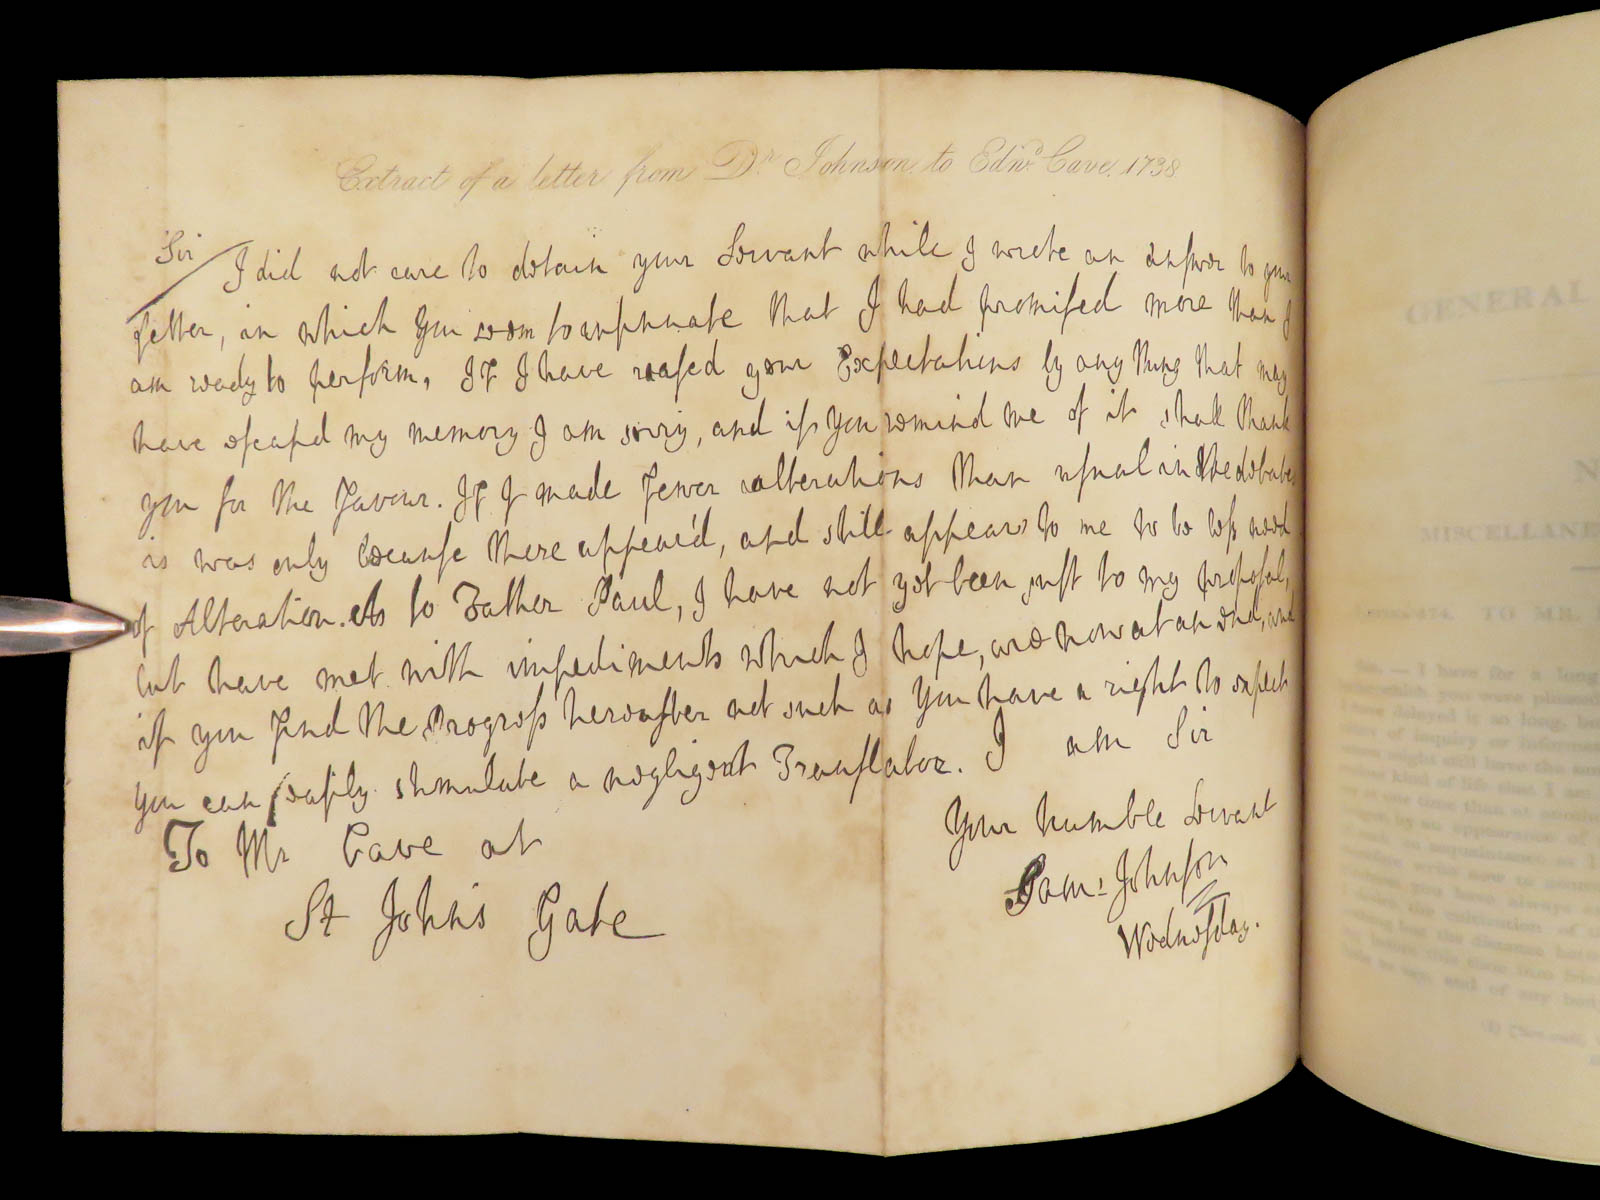 Extract of a letter from Dr. Johnson to Edwd. Cave. 1738
Sir
I did not care to detain your Servant while I wrote an Answer to your
Letter, in which you seem to insinuate that I had promised more than I
am ready to perform, If I have raised your Expectations by any thing that may
have escap'd my memory I am sorry, and if you remind me of it shall thank
you for the Favour. If I made fewer alterations than usual in the debates
is was only because there appear'd, and still appears to me to be less need
of Alteration. As to Father Paul, I have not yet been just to my proposal,
but have met with impediments which I hope, are now at an end, and
if you find the Progress hereafter not such as You have a right to expect
you can easily stimulate a negligent Translator. I am Sir
Your humble Servant
Sam: Johnson
Wednesday.
To Mr Cave at
St John's Gate
GENERAL
MISCELLANE
TO MR.
SIR, — I have for a long